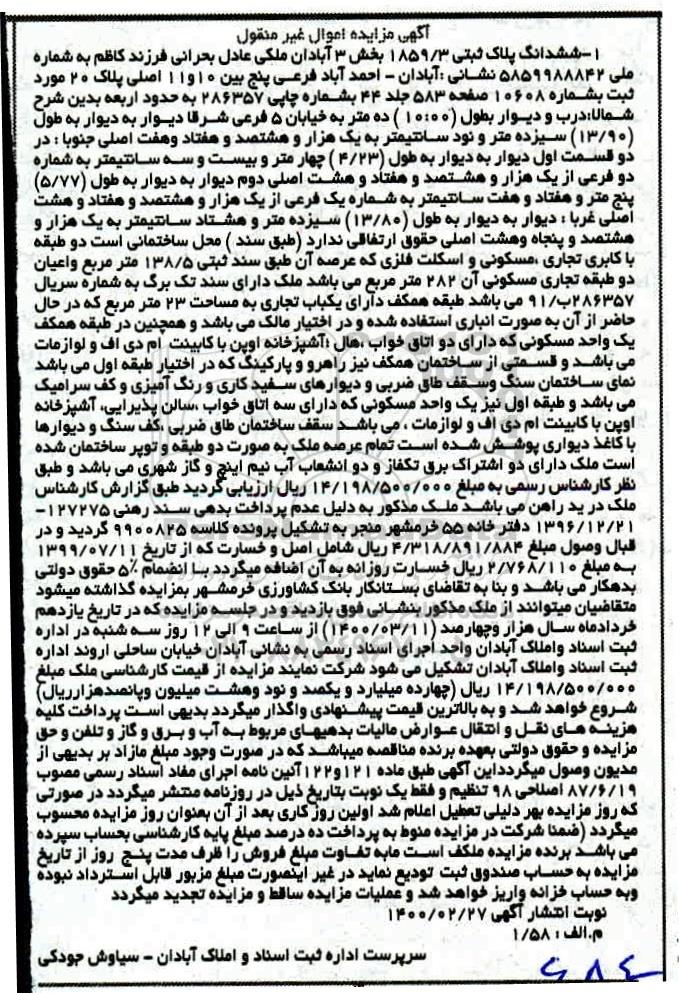 آگهی مزایده اموال غیر منقول
۱-ششدانگ پلاک ثبتی ۱۸۵۹/۳ بخش ۳ آبادان ملکی عادل بحرانی فرزند کاظم به شماره
ملی ۵۸۵۹۹۸۸۸۴۲ نشانی :آبادان - احمد آباد فرعی پنج بین ۱۰و۱۱ اصلی پلاک ۲۰ مورد
ثبت بشماره ۱۰۶۰۸ صفحه ۵۸۳ جلد ۴۴ بشماره چاپی ۲۸۶۳۵۷ به حدود اربعه بدین شرح
شمالا:درب و دیوار بطول (۱۰:۰۰) ده متر به خیابان ۵ فرعی شرقا دیوار به دیوار به طول
(۱۳/۹۰) سیزده متر و نود سانتیمتر به یک هزار و هشتصد و هفتاد وهفت اصلی جنوبا : در
دو قسمت اول دیوار به دیوار به طول (۴/۲۳) چهار متر و بیست و سه سانتیمتر به شماره
دو فرعی از یک هزار و هشتصد و هفتاد و هشت اصلی دوم دیوار به دیوار به طول (۵/۷۷)
پنج متر و هفتاد و هفت سانتیمتر به شماره یک فرعی از یک هزار و هشتصد و هفتاد و هشت
اصلی غربا : دیوار به دیوار به طول (۱۳/۸۰) سیزده متر و هشتاد سانتیمتر به یک هزار و
هشتصد و پنجاه وهشت اصلی حقوق ارتفاقی ندارد (طبق سند ) محل ساختمانی است دو طبقه
با کابری تجاری ،مسکونی و اسکلت فلزی که عرصه آن طبق سند ثبتی ۱۳۸/۵ متر مربع واعیان
دو طبقه تجاری مسکونی آن ۲۸۲ متر مربع می باشد ملک دارای سند تک برگ به شماره سریال
۲۸۶۳۵۷ب/۹۱ می باشد طبقه همکف دارای یکباب تجاری به مساحت ۲۳ متر مربع که در حال
حاضر از آن به صورت انباری استفاده شده و در اختیار مالک می باشد و همچنین در طبقه همکف
یک واحد مسکونی که دارای دو اتاق خواب ،هال :آشپزخانه اوپن با کابینت ام دی اف و لوازمات
می باشد و قسمتی از ساختمان همکف نیز راهرو و پارکینگ که در اختیار طبقه اول می باشد
نمای ساختمان سنگ وسقف طاق ضربی و دیوارهای سفید کاری و رنگ آمیزی و کف سرامیک
می باشد و طبقه اول نیز یک واحد مسکونی که دارای سه اتاق خواب ،سالن پذیرایی، آشپزخانه
اوپن با کابینت ام دی اف و لوازمات ، می باشد سقف ساختمان طاق ضربی ،کف سنگ و دیوارها
با کاغذ دیواری پوشش شده است تمام عرصه ملک به صورت دو طبقه و توپر ساختمان شده
است ملک دارای دو اشتراک برق تکفاز و دو انشعاب آب نیم اینچ و گاز شهری می باشد و طبق
نظر کارشناس رسمی به مبلغ ۱۴/۱۹۸/۵۰۰/۰۰۰ ریال ارزیابی گردید طبق گزارش کارشناس
ملک در ید راهن می باشد ملک مذکور به دلیل عدم پرداخت بدهی سند رهنی ۱۲۷۲۷۵-
۱۳۹۶/۱۲/۲۱ دفتر خانه ۵۵ خرمشهر منجر به تشکیل پرونده کلاسه ۹۹۰۰۸۲۵ گردید و در
قبال وصول مبلغ ۴/۳۱۸/۸۹۱/۸۸۴ ریال شامل اصل و خسارت که از تاریخ ۱۳۹۹/۰۷/۱۱
به مبلغ ۲/۷۶۸/۱۱۰ ریال خسارت روزانه به آن اضافه میگردد با انضمام ۵٪ حقوق دولتی
بدهکار می باشد و بنا به تقاضای بستانکار بانک کشاورزی خرمشهر بمزایده گذاشته میشود
متقاضیان میتوانند از ملک مذکور بنشانی فوق بازدید و در جلسه مزایده که در تاریخ یازدهم
خردادماه سال هزار وچهارصد (۱۴۰۰/۰۳/۱۱) از ساعت ۹ الی ۱۲ روز سه شنبه در اداره
ثبت اسناد واملاک آبادان واحد اجرای اسناد رسمی به نشانی آبادان خیابان ساحلی اروند اداره
ثبت اسناد واملاک آبادان تشکیل می شود شرکت نمایند مزایده از قیمت کارشناسی ملک مبلغ
۱۴/۱۹۸/۵۰۰/۰۰۰ ریال (چهارده میلیارد و یکصد و نود وهشت میلیون وپانصدهزارریال)
شروع خواهد شد و به بالاترین قیمت پیشنهادی واگذار میگردد بدیهی است پرداخت کلیه
هزینه های نقل و انتقال عوارض مالیات بدهیهای مربوط به آب و برق و گاز و تلفن و حق
مزایده و حقوق دولتی بعهده برنده مناقصه میباشد که در صورت وجود مبلغ مازاد بر بدیهی از
مدیون وصول میگردداین آگهی طبق ماده ۱۲۱و۱۲۲آئین نامه اجرای مفاد اسناد رسمی مصوب
۸۷/۶/۱۹ اصلاحی ۹۸ تنظیم و فقط یک نوبت بتاریخ ذیل در روزنامه منتشر میگردد در صورتی
که روز مزایده بهر دلیلی تعطیل اعلام شد اولین روز کاری بعد از آن بعنوان روز مزایده محسوب
میگردد (ضمنا شرکت در مزایده منوط به پرداخت ده درصد مبلغ پایه کارشناسی بحساب سپرده
می باشد برنده مزایده ملکف است مابه تفاوت مبلغ فروش را ظرف مدت پنج روز از تاریخ
مزایده به حساب صندوق ثبت تودیع نماید در غیر اینصورت مبلغ مزبور قابل استرداد نبوده
وبه حساب خزانه واریز خواهد شد و عملیات مزایده ساقط و مزایده تجدید میگردد
نوبت انتشار آگهی ۱۴۰۰/۰۲/۲۷
م.الف : ۱/۵۸
سرپرست اداره ثبت اسناد و املاک آبادان - سیاوش جودکی